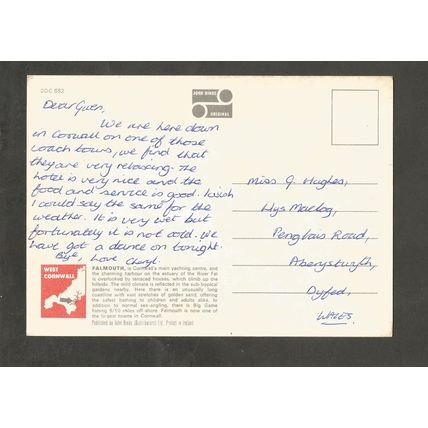 2DC 552
JOHN HINDE
ORIGINAL
Dear Gwen,
We are here down
in Cornwall on one of those
coach tours, we find that
they are very relaxing. The
hotel is very nice and the
food and service is good. I wish
I could say the same for the
weather. It is very wet but
fortunately it is not cold. We
have got a dance on tonight.
Bye, Love Cheryl.
Miss G. Hughes,
Llys Maelog,
Penglais Road,
Aberystwyth,
Dyfed,
WALES.
WEST
CORNWALL
FALMOUTH, is Cornwall's main yachting centre, and
the charming harbour on the estuary of the River Fal
is overlooked by terraced houses, which climb up the
hillside. The mild climate is reflected in the sub-tropical
gardens nearby. Here there is an unusually long
coastline with vast stretches of golden sand, offering
the safest bathing to children and adults alike. In
addition to normal sea-angling, there is Big Game
fishing 8/10 miles off-shore. Falmouth is now one of
the largest towns in Cornwall.
Published by John Hinde (Distributors) Ltd. Printed in Ireland